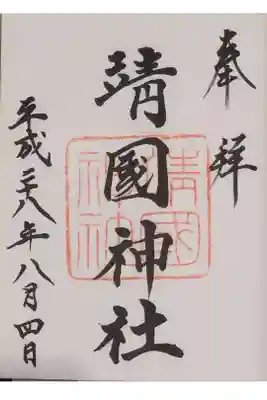 奉拝
靖國神社
平成二十八年八月四日
靖國神社